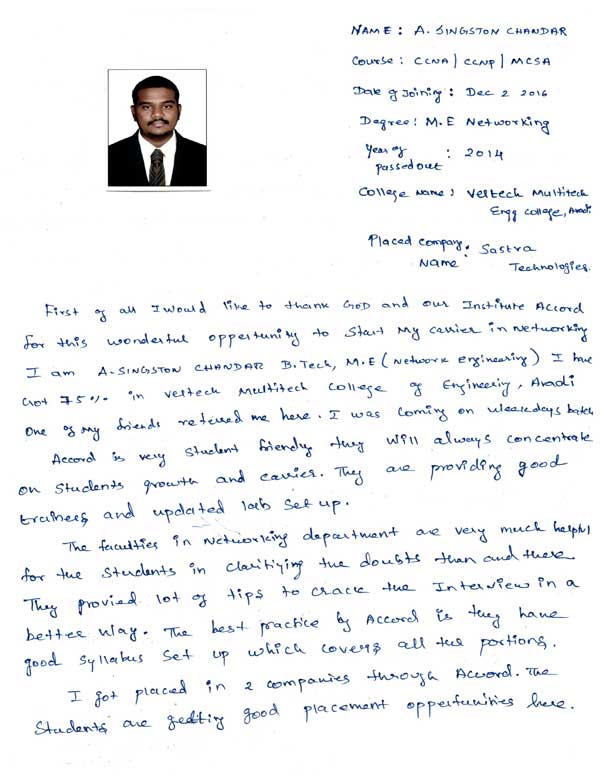 NAME : A. SINGSTON CHANDAR
Course : CCNA | CCNP | MCSA
Date of Joining : Dec 2 2016
Degree : M.E Networking
Year of passedout : 2014
College Name : Veltech Multitech
Engg College, Avadi
Placed company Name : Sastra
Technologies.
First of all I would like to thank GOD and our Institute Accord
for this wonderful oppertunity to start my carrier in Networking
I am A.SINGSTON CHANDAR B.Tech, M.E (Network Engineering) I have
Got 75% in veltech Multitech College of Engineering, Avadi
One of my friends refered me here. I was coming on weekdays batch
Accord is very student friendly they will always concentrate
on students growth and carrier. They are providing good
trainers and updated lab set up.
The faculties in Networking department are very much helpful
for the students in clarifiying the doubts than and there.
They provied lot of tips to crack the Interview in a
better way. The best practice by Accord is they have
good syllabus set up which covers all the portions.
I got placed in 2 companies through Accord. The
Students are getting good placement oppertunities here.